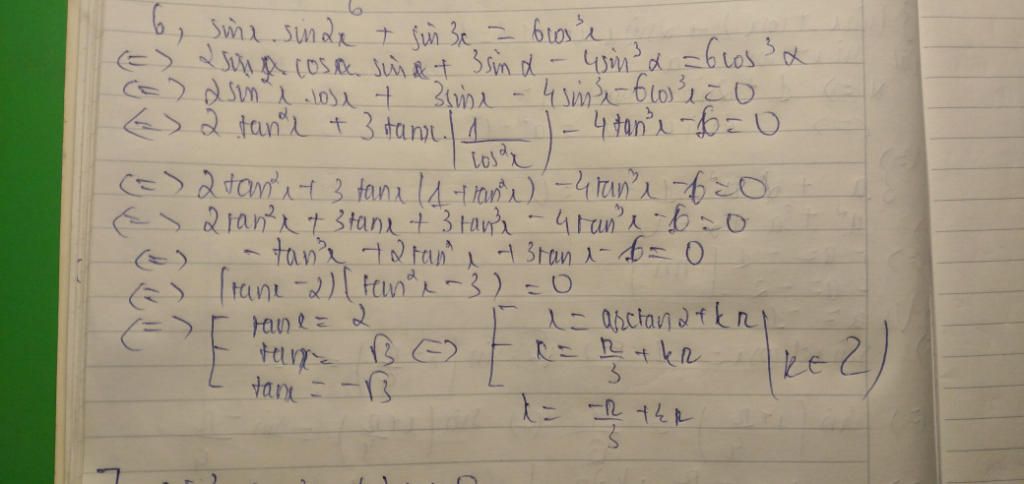 6, sinx.sin2x + sin3x = 6cos³x
<=> 2sinx cosx. sinx + 3sinα - 4sin³α = 6cos³α
<=> 2sin²x.cosx + 3sinx - 4sin³x - 6cos³x = 0
<=> 2 tan²x + 3 tanx.(1/cos²x) - 4tan³x - 6 = 0
<=> 2tan²x + 3 tanx (1+tan²x) - 4tan³x - 6 = 0
<=> 2tan²x + 3tanx + 3tan³x - 4tan³x - 6 = 0
<=> - tan³x + 2tan²x + 3tanx - 6 = 0
<=> (tanx - 2)(tan²x - 3) = 0
<=> [ tanx = 2 x = arctan2 + kπ
tanx = √3 <=> [ x = π/3 + kπ (k ∈ Z)
tanx = -√3
x = -π/3 + kπ
7